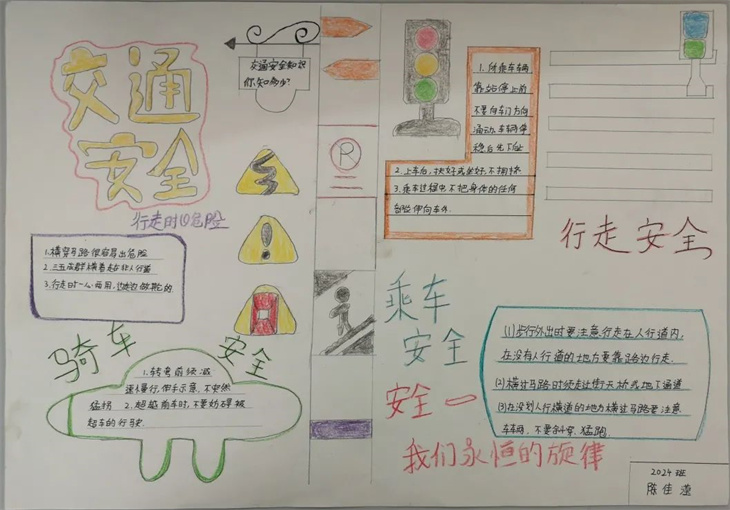 交通
安全
交通安全知识
你知多少?
行走时的危险
1.横穿马路很容易出危险
2.三五成群横着走在非人行道
3.行走时一心两用,边走边做其它的
骑车
安全
1.转弯前须减
速慢行,伸手示意,不突然
猛拐 2.超越前车时,不要妨碍被
超车的行驶.
R
1.所乘车车辆
靠站停上前
不要向车门方向
涌动,车辆停
稳后先下后
2.上车后,扶好或坐好,不拥挤
3.乘车过程中不把身体的任何
部位伸向车外.
行走安全
乘车
安全
安全一
我们永恒的旋律
(1)步行外出时要注意行走在人行道内,
在没有人行道的地方要靠路边行走.
(2)横过马路时须走过街天桥或地下通道
(3)在没划人行横道的地方横过马路要注意
车辆,不要斜穿,猛跑.
2024班
陈佳滢